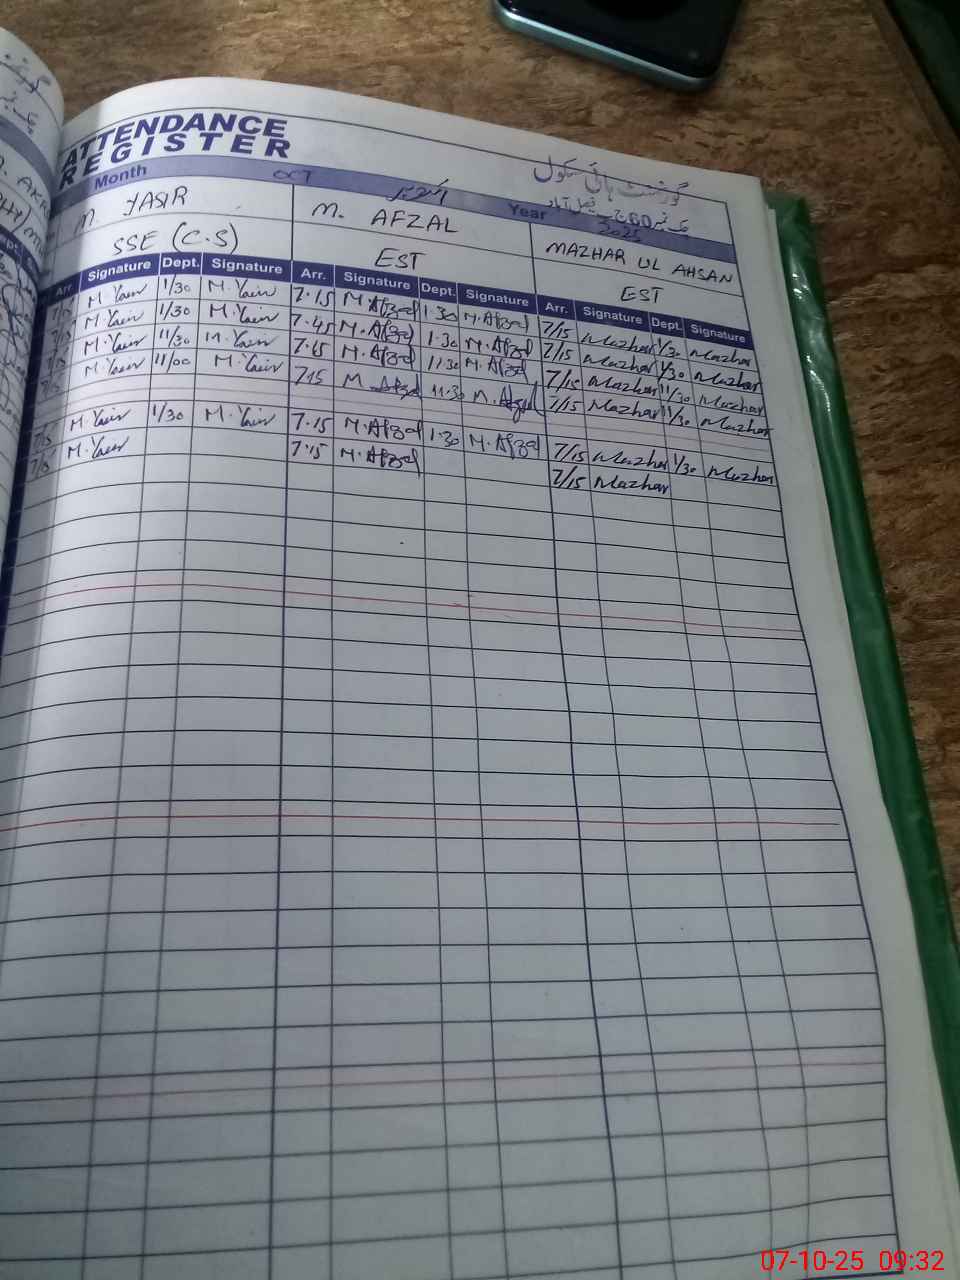 ATTENDANCE
REGISTER
Month OCT اکتوبر Year 2025
گورنمنٹ ہائی سکول
چک نمبر 60 ج ب فیصل آباد
M. YASIR M. AFZAL MAZHAR UL AHSAN
SSE (C.S) EST EST
Arr. Signature Dept. Signature Arr. Signature Dept. Signature Arr. Signature Dept. Signature
7/15 M.Yasir 1/30 M.Yasir 7.15 M.Afzal 1.30 M.Afzal 7/15 Mazhar 1/30 Mazhar
7/15 M.Yasir 1/30 M.Yasir 7.45 M.Afzal 1.30 M.Afzal 7/15 Mazhar 1/30 Mazhar
7/15 M.Yasir 11/30 M.Yasir 7.45 M.Afzal 11.30 M.Afzal 7/15 Mazhar 11/30 Mazhar
M.Yasir 11/00 M.Yasir 7.15 M.Afzal 11.30 M.Afzal 7/15 Mazhar 11/30 Mazhar
7/15 M.Yasir 1/30 M.Yasir 7.15 M.Afzal 1.30 M.Afzal 7/15 Mazhar 1/30 Mazhar
7/15 M.Yasir 7.15 M.Afzal 7/15 Mazhar
07-10-25 09:32